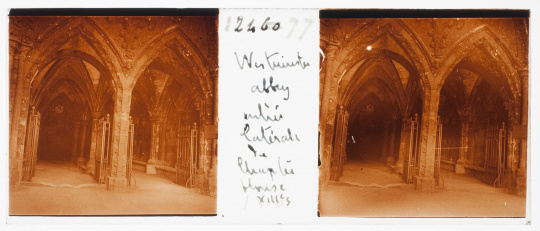 12460 77
Westminster
abbey
entrée
latérale
de
Chapter
House
XIIIe s